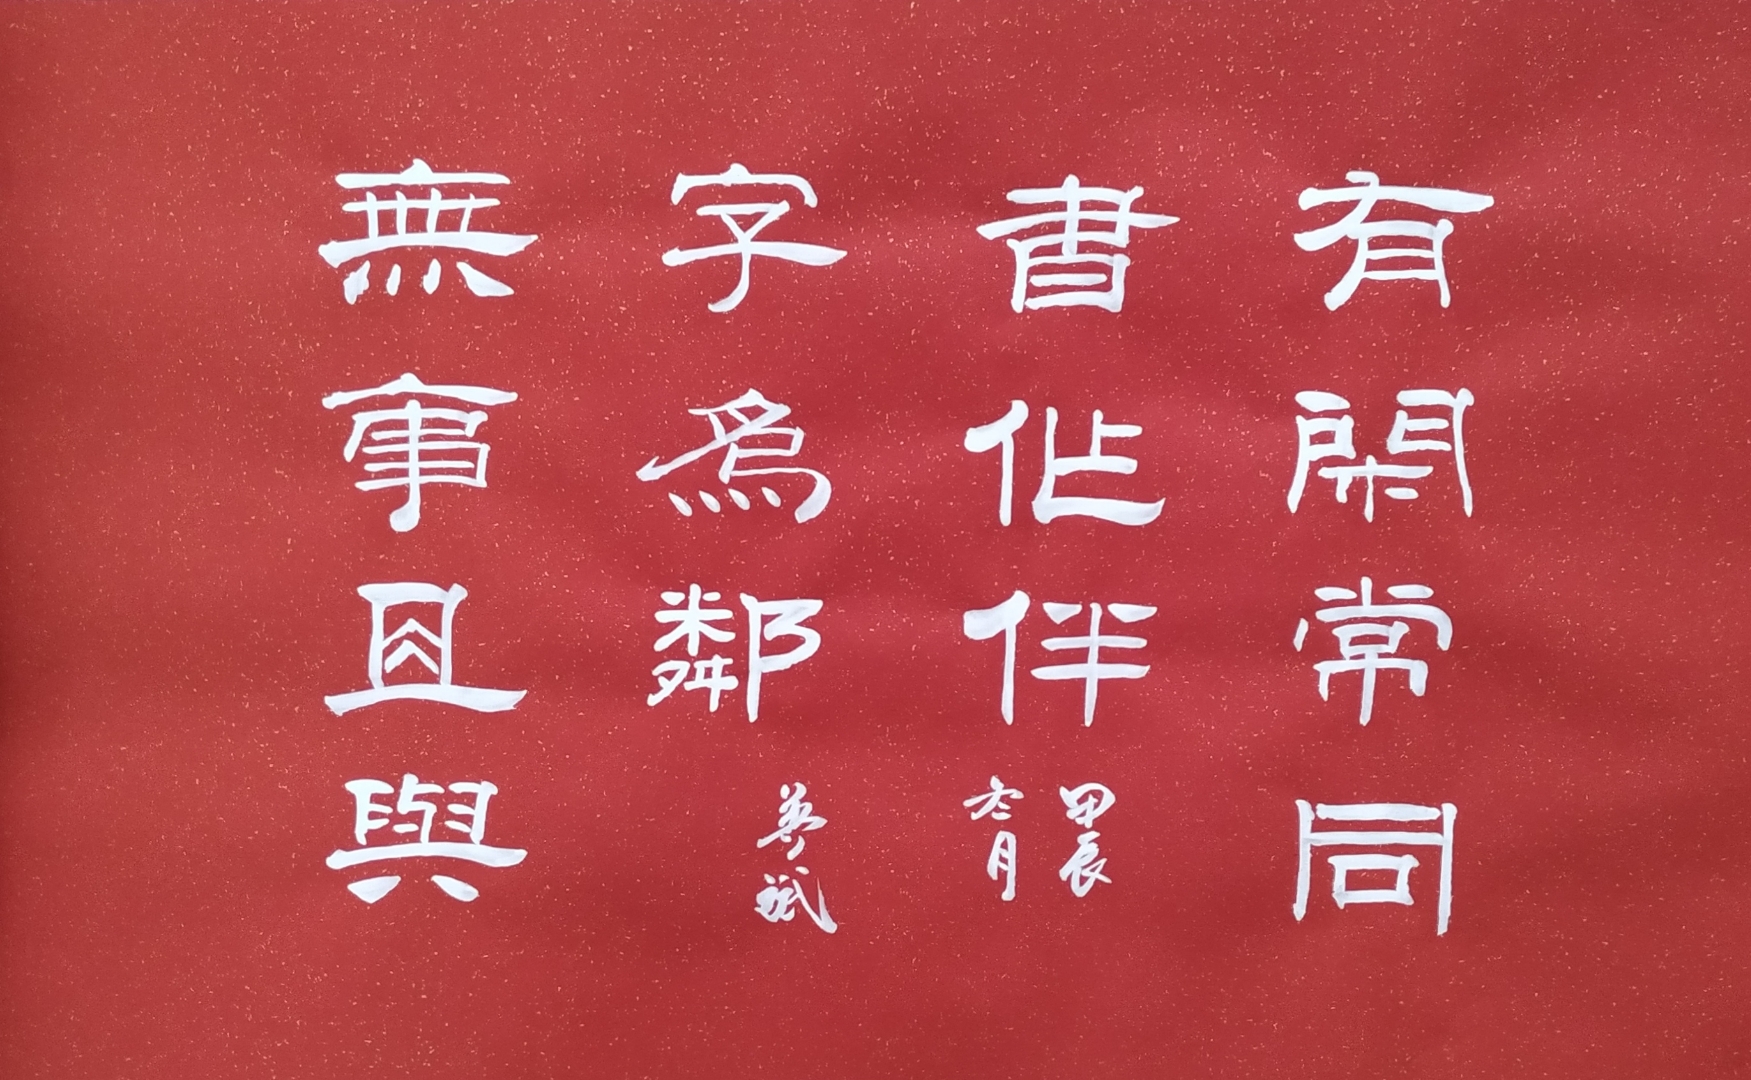 有閑常同
書作伴
甲辰
冬月
無事且與
字爲鄰